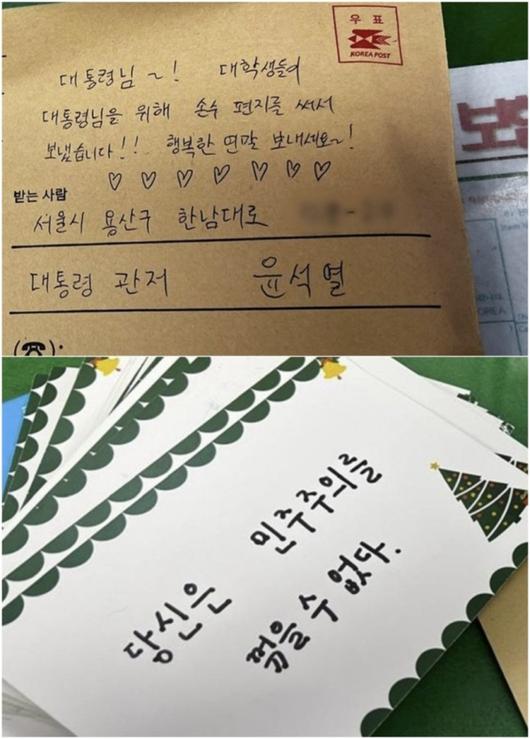 우 표
KOREA POST
대통령님~! 대학생들이
대통령님을 위해 손수 편지를 써서
보냈습니다!! 행복한 연말 보내세요~!
♡ ♡ ♡ ♡ ♡ ♡ ♡
받는 사람
서울시 용산구 한남대로
대통령 관저 윤석열
(☎):
당신은 민주주의를
꺾을 수 없다.